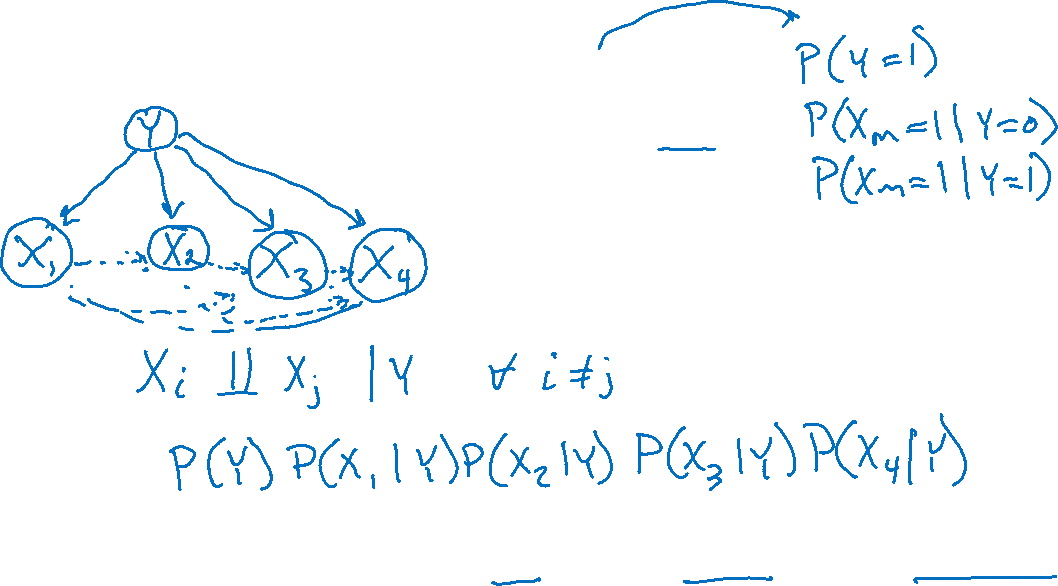 P(Y=1)
P(Xm=1|Y=0)
P(Xm=1|Y=1)
Y
X1 X2 X3 X4
Xi ⫫ Xj | Y ∀ i≠j
P(Y) P(X1|Y) P(X2|Y) P(X3|Y) P(X4|Y)